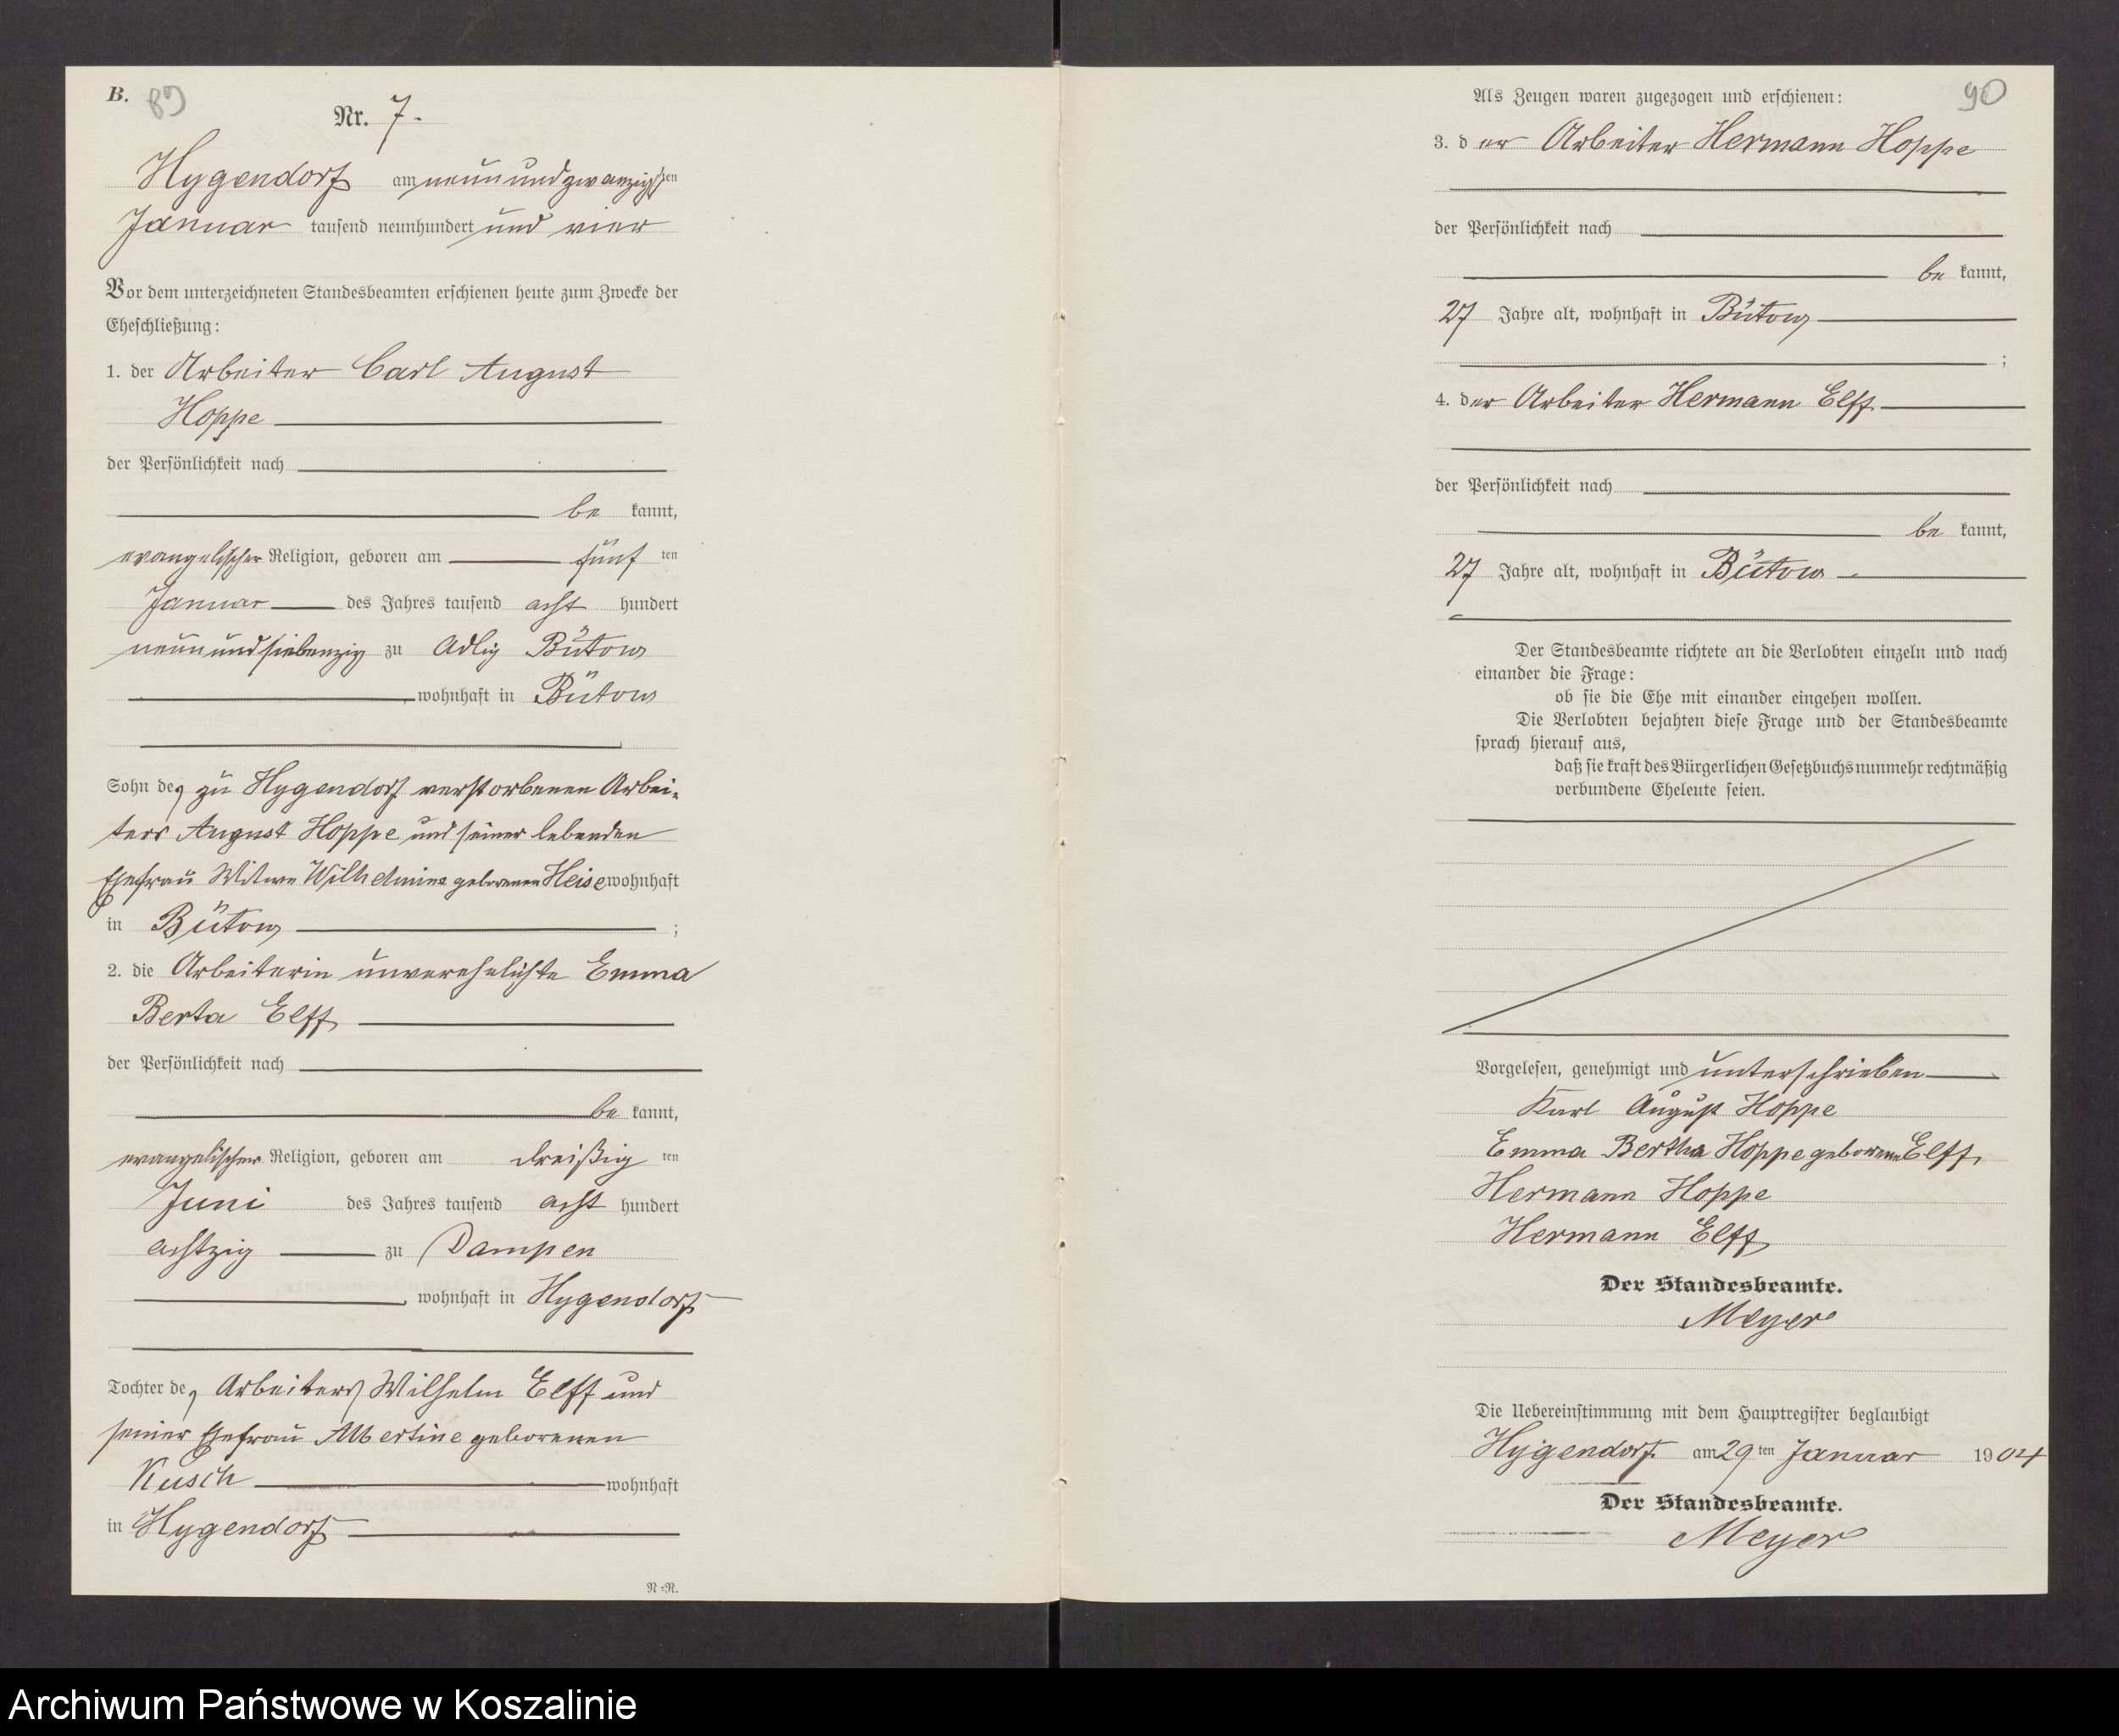 B. 89
Nr. 7.
Hygendorf am neun und zwanzigsten
Januar tausend neunhundert und vier
Vor dem unterzeichneten Standesbeamten erschienen heute zum Zwecke der
Eheschließung:
1. der Arbeiter Carl August
Hoppe
der Persönlichkeit nach
be kannt,
evangelischer Religion, geboren am fünf ten
Januar des Jahres tausend acht hundert
neun und siebenzig zu Adlig Bütow
wohnhaft in Bütow
Sohn des zu Hygendorf verstorbenen Arbei-
ters August Hoppe und seiner lebenden
Ehefrau Witwe Wilhelmine geborenen Heise wohnhaft
in Bütow ;
2. die Arbeiterin unverehelichte Emma
Berta Elff
der Persönlichkeit nach
be kannt,
evangelischer Religion, geboren am dreißig ten
Juni des Jahres tausend acht hundert
achtzig zu Dampen
wohnhaft in Hygendorf
Tochter des Arbeiters Wilhelm Elff und
seiner Ehefrau Albertine geborenen
Kusch wohnhaft
in Hygendorf
N=N.
90
Als Zeugen waren zugezogen und erschienen:
3. d er Arbeiter Hermann Hoppe
der Persönlichkeit nach
be kannt,
27 Jahre alt, wohnhaft in Bütow
;
4. der Arbeiter Hermann Elff
der Persönlichkeit nach
be kannt,
27 Jahre alt, wohnhaft in Bütow
Der Standesbeamte richtete an die Verlobten einzeln und nach
einander die Frage:
ob sie die Ehe mit einander eingehen wollen.
Die Verlobten bejahten diese Frage und der Standesbeamte
sprach hierauf aus,
daß sie kraft des Bürgerlichen Gesetzbuchs nunmehr rechtmäßig
verbundene Eheleute seien.
Vorgelesen, genehmigt und unterschrieben
Karl August Hoppe
Emma Bertha Hoppe geborene Elff
Hermann Hoppe
Hermann Elff
Der Standesbeamte.
Meyer
Die Uebereinstimmung mit dem Hauptregister beglaubigt
Hygendorf am 29 ten Januar 1904
Der Standesbeamte.
Meyer
Archiwum Państwowe w Koszalinie